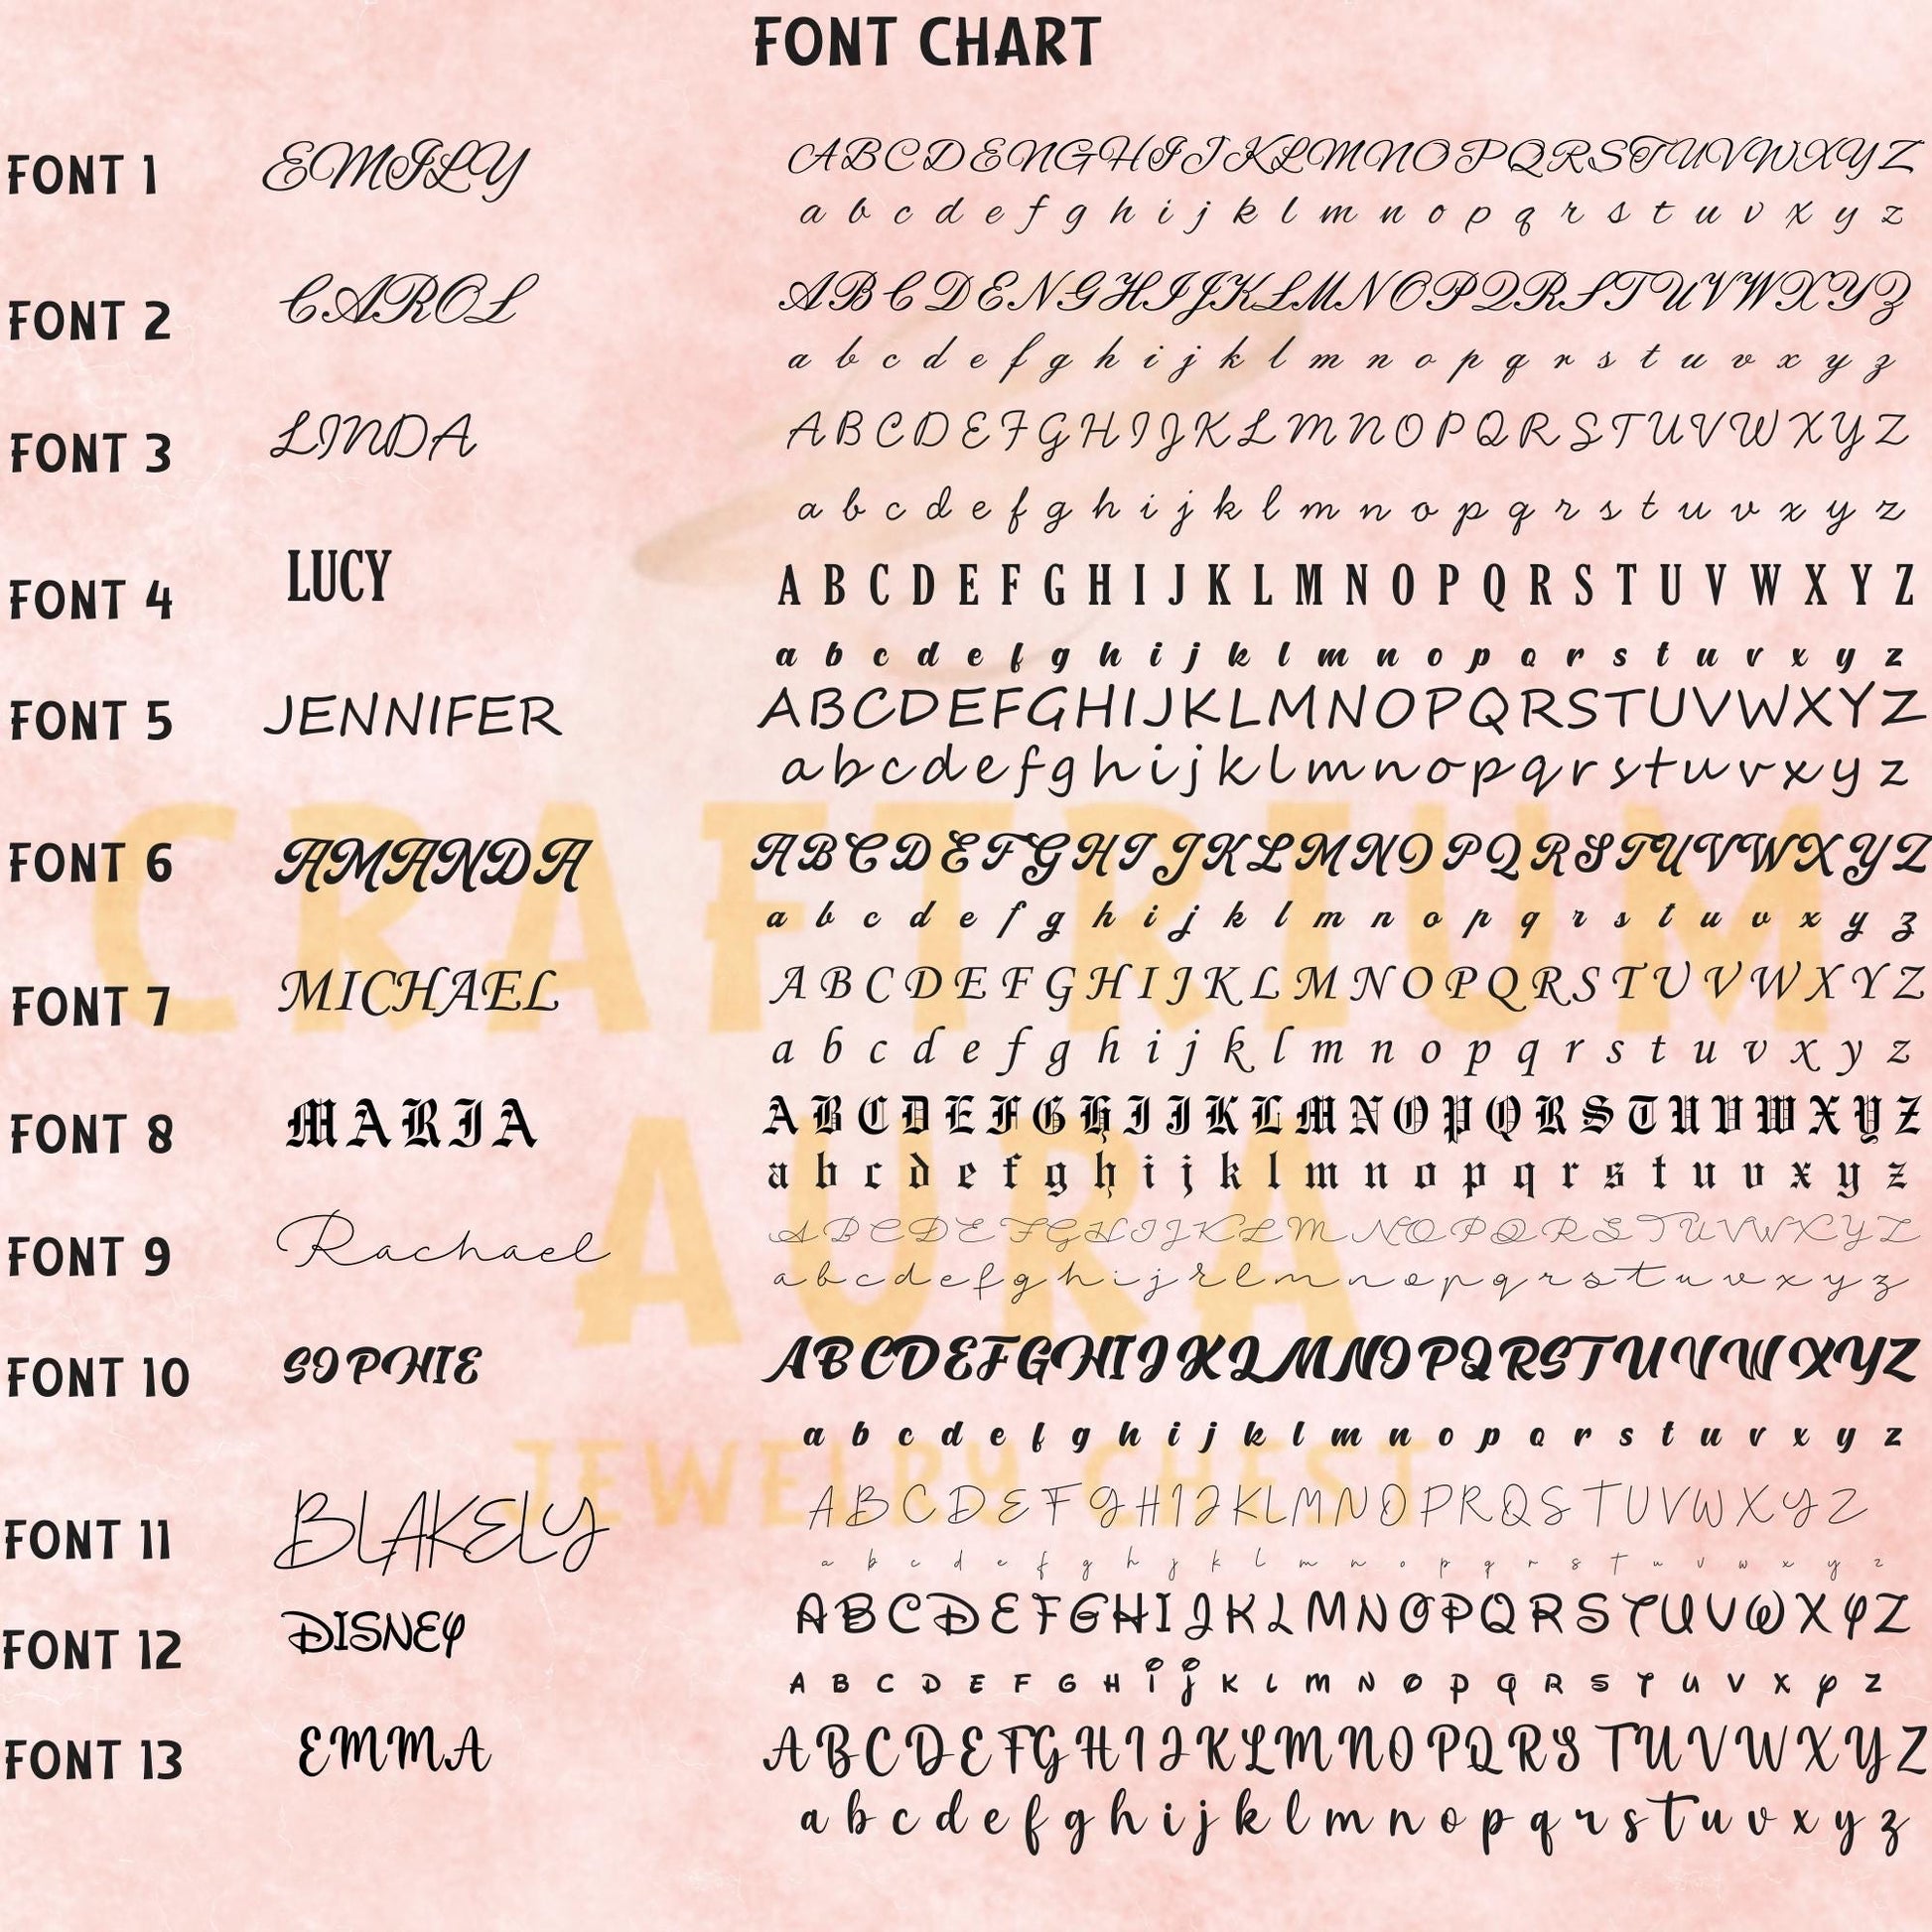 FONT CHART
FONT 1 EMILY ABCDENGHIJKLMNOPQRSTUVWXYZ
a b c d e f g h i j k l m n o p q r s t u v x y z
FONT 2 CAROL ABCDENGHIJKLMNOPQRSTUVWXYZ
a b c d e f g h i j k l m n o p q r s t u v x y z
FONT 3 LINDA ABCDEFGHIJKLMNOPQRSTUVWXYZ
a b c d e f g h i j k l m n o p q r s t u v x y z
FONT 4 LUCY A B C D E F G H I J K L M N O P Q R S T U V W X Y Z
a b c d e f g h i j k l m n o p q r s t u v x y z
FONT 5 JENNIFER ABCDEFGHIJKLMNOPQRSTUVWXYZ
a b c d e f g h i j k l m n o p q r s t u v x y z
CRAFTRIUM
FONT 6 AMANDA ABCDEFGHIJKLMNOPQRSTUVWXYZ
a b c d e f g h i j k l m n o p q r s t u v x y z
FONT 7 MICHAEL A B C D E F G H I J K L M N O P Q R S T U V W X Y Z
a b c d e f g h i j k l m n o p q r s t u v x y z
FONT 8 MARIA A B C D E F G H I J K L M N O P Q R S T U V W X Y Z
a b c d e f g h i j k l m n o p q r s t u v x y z
AURA
FONT 9 Rachael ABCDEFGHIJKLMNOPQRSTUVWXYZ
a b c d e f g h i j k l m n o p q r s t u v x y z
FONT 10 SOPHIE ABCDEFGHIJKLMNOPQRSTUVWXYZ
a b c d e f g h i j k l m n o p q r s t u v x y z
JEWELRY CHEST
FONT 11 BLAKELY A B C D E F G H I J K L M N O P R Q S T U V W X Y Z
a b c d e f g h j k l m n o p q r s t u v w x y z
FONT 12 DISNEY A B C D E F G H I J K L M N O P Q R S T U V W X Y Z
A B C D E F G H i j K L M N O P Q R S T U V X Y Z
FONT 13 EMMA A B C D E F G H I J K L M N O P Q R S T U V W X Y Z
a b c d e f g h i j k l m n o p q r s t u v x y z